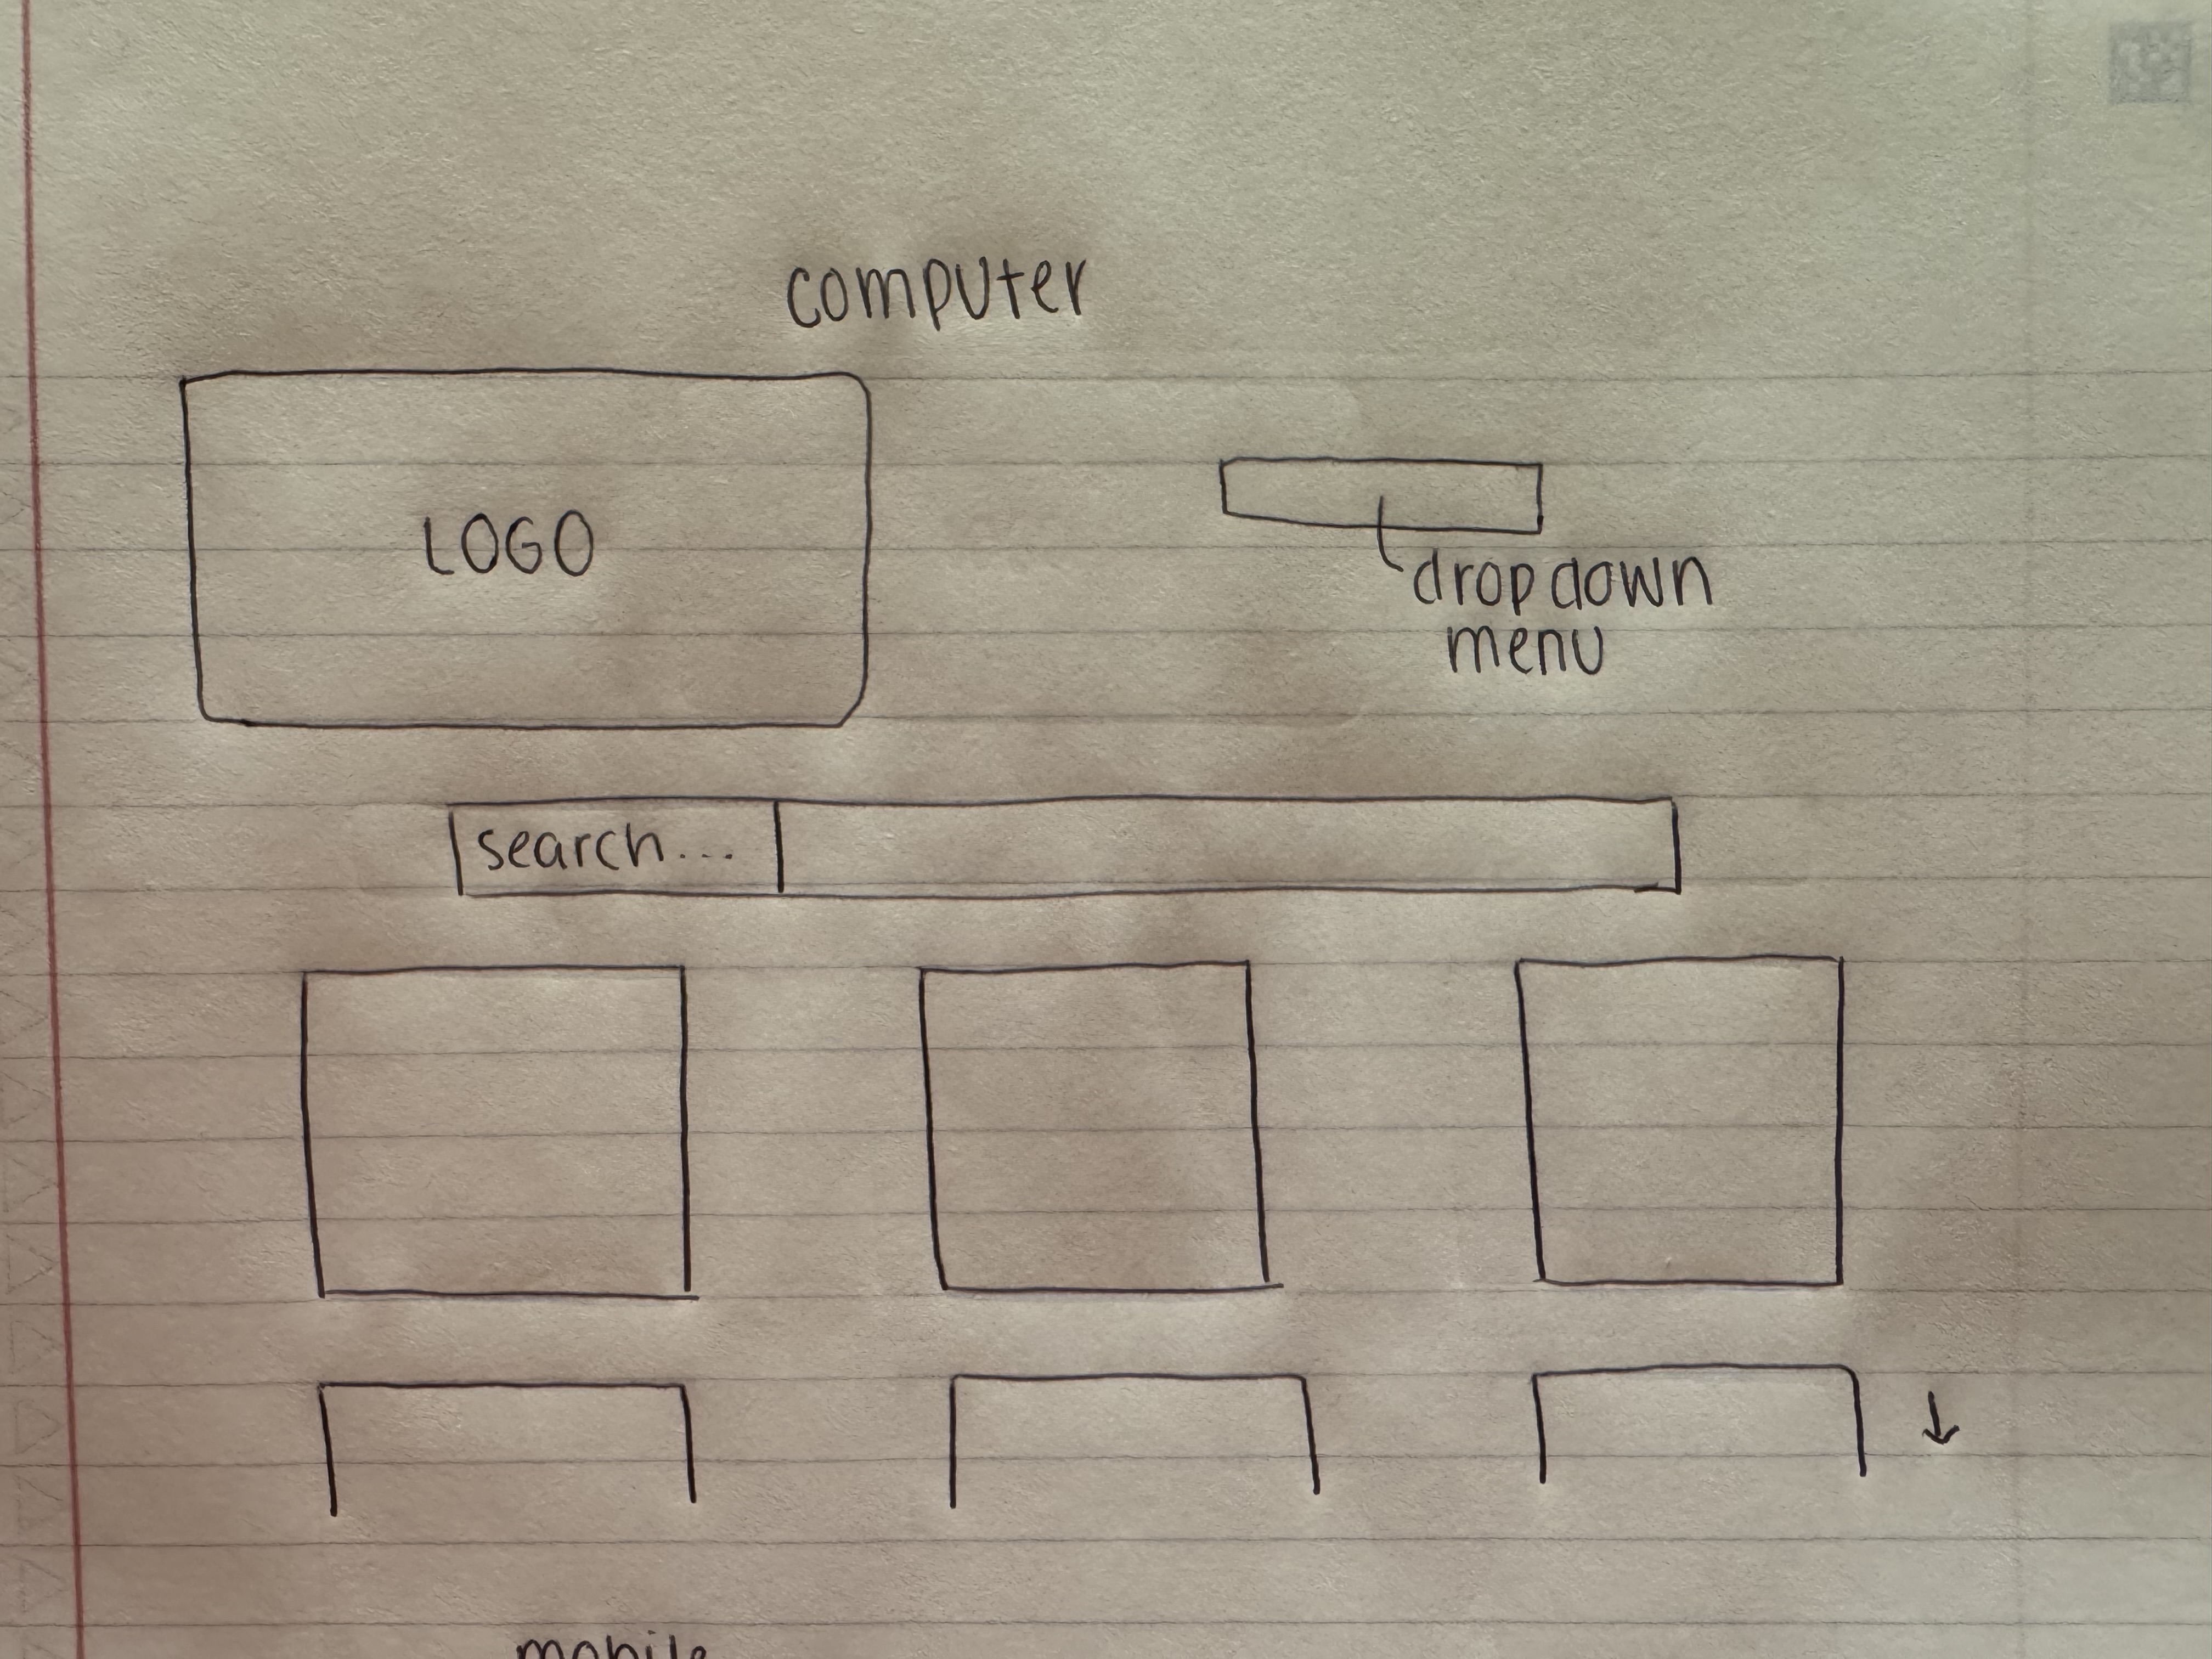 computer
LOGO
dropdown
menu
search...
mobile